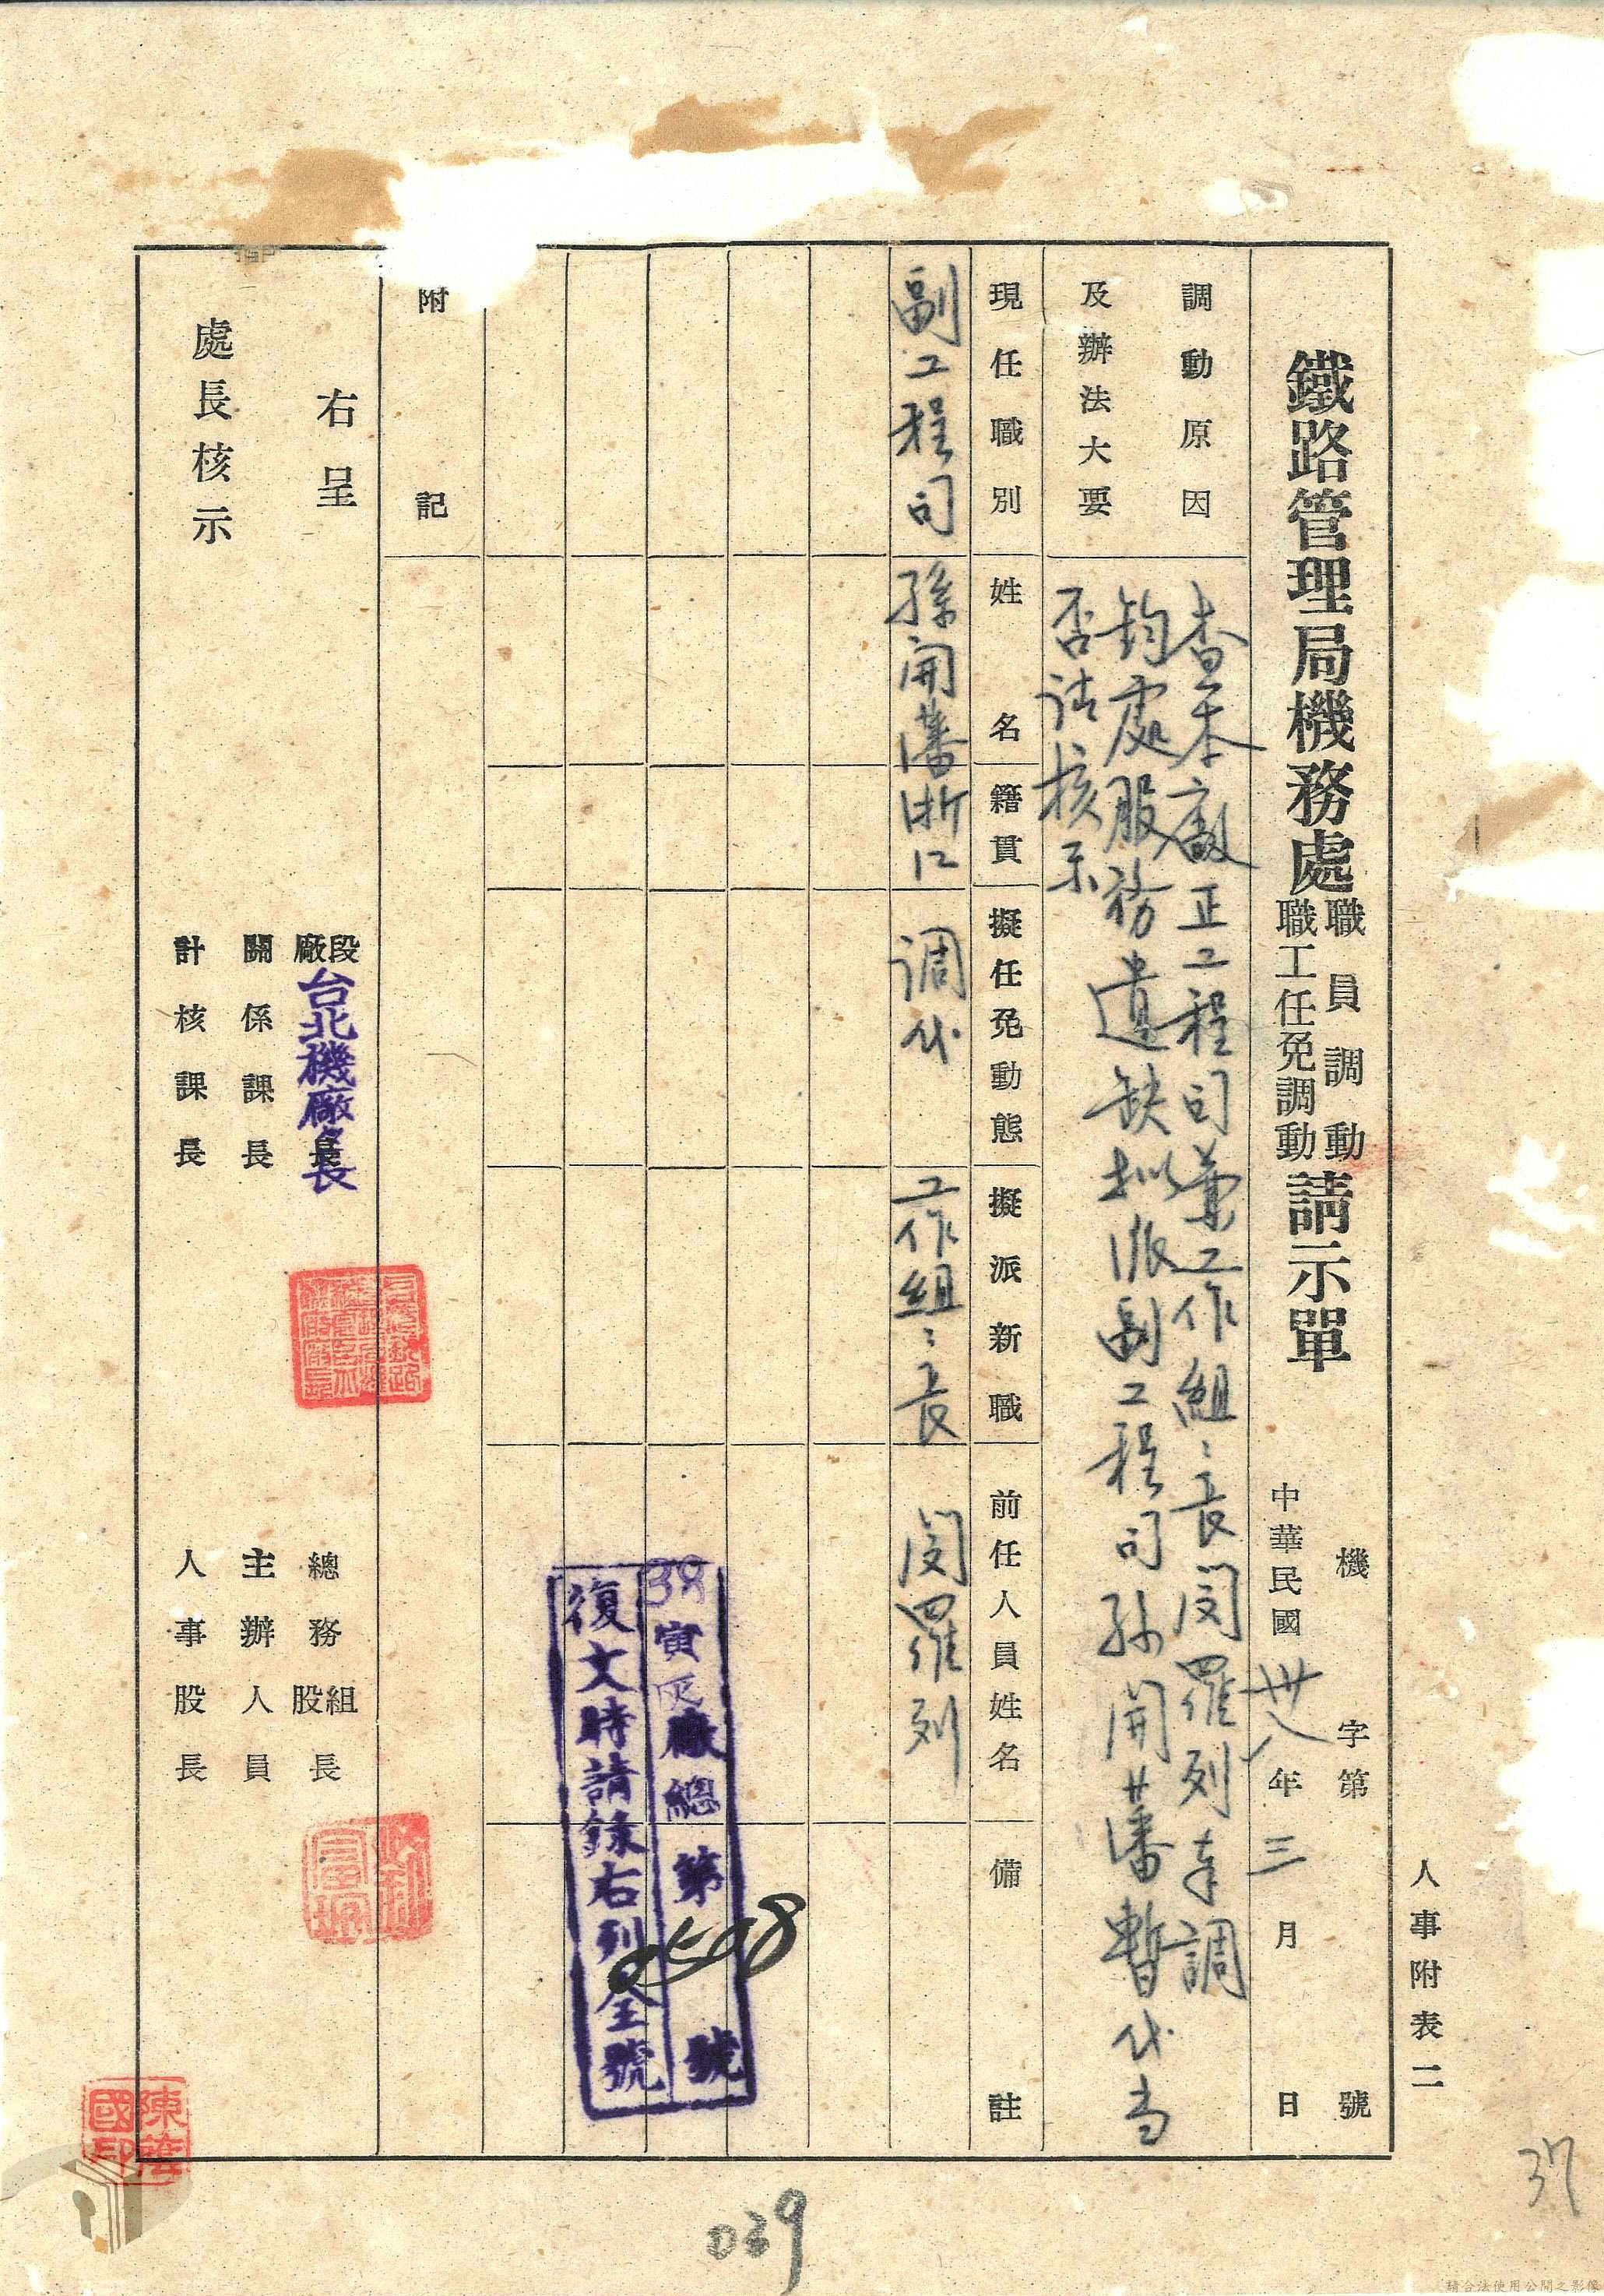 人事附表二
機 字第 號
鐵路管理局機務處職員調動職工任免調動請示單
中華民國卅八年三月 日
調動原因及辦法大要
查本廠正工程司兼工作組〻長閔羅列奉調
鈞處服務遺缺擬派副工程司孫開藩暫代当
否請核示
現任職別 姓名 籍貫 擬任免動態 擬派新職 前任人員姓名 備註
副工程司 孫開藩 浙江 调代 工作組〻長 閔羅列
38寅 廠總第0508號
復文時請錄右列全號
附記
右呈
處長核示
廠段長
台北機廠長
關係課長
計核課長
總務股組長
主辦人員
人事股長
陳蔭國印
039
37
請合法使用公開之影像